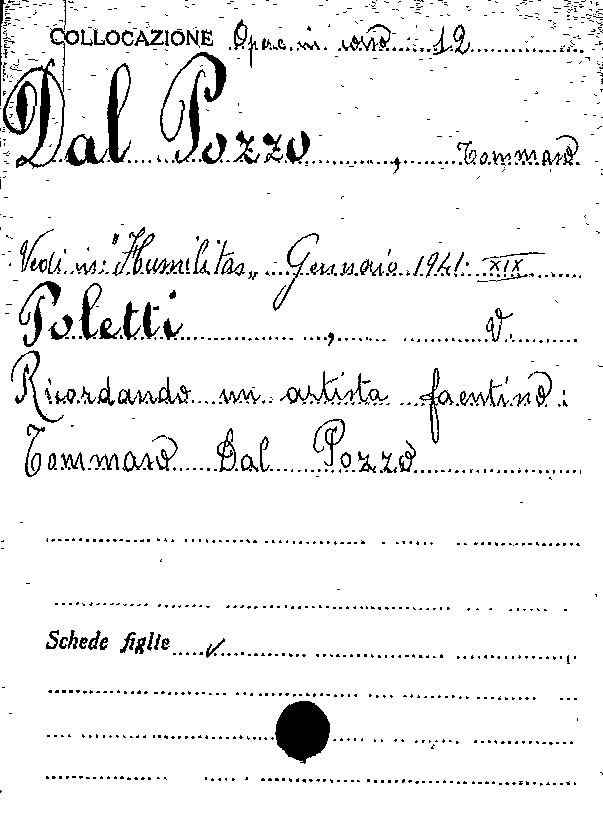 COLLOCAZIONE Opac. in corso 12
Dal Pozzo, Tommaso
Vedi in: "Humilitas„ Gennaio 1941. XIX
Poletti, V.
Ricordando un artista faentino:
Tommaso Dal Pozzo
Schede figlie ✓